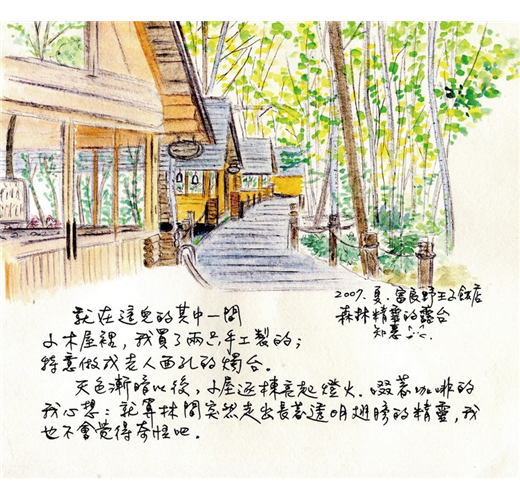 2007. 夏. 富良野王子飯店
森林精靈的露台
就在這兒的其中一間
小木屋裡，我買了兩只手工製的；
特意做成老人面孔的燭台。
天色漸暗以後，小屋逐棟亮起燈火．啜著咖啡的
我心想：就算林間突然走出長著透明翅膀的精靈，我
也不會覺得奇怪吧．